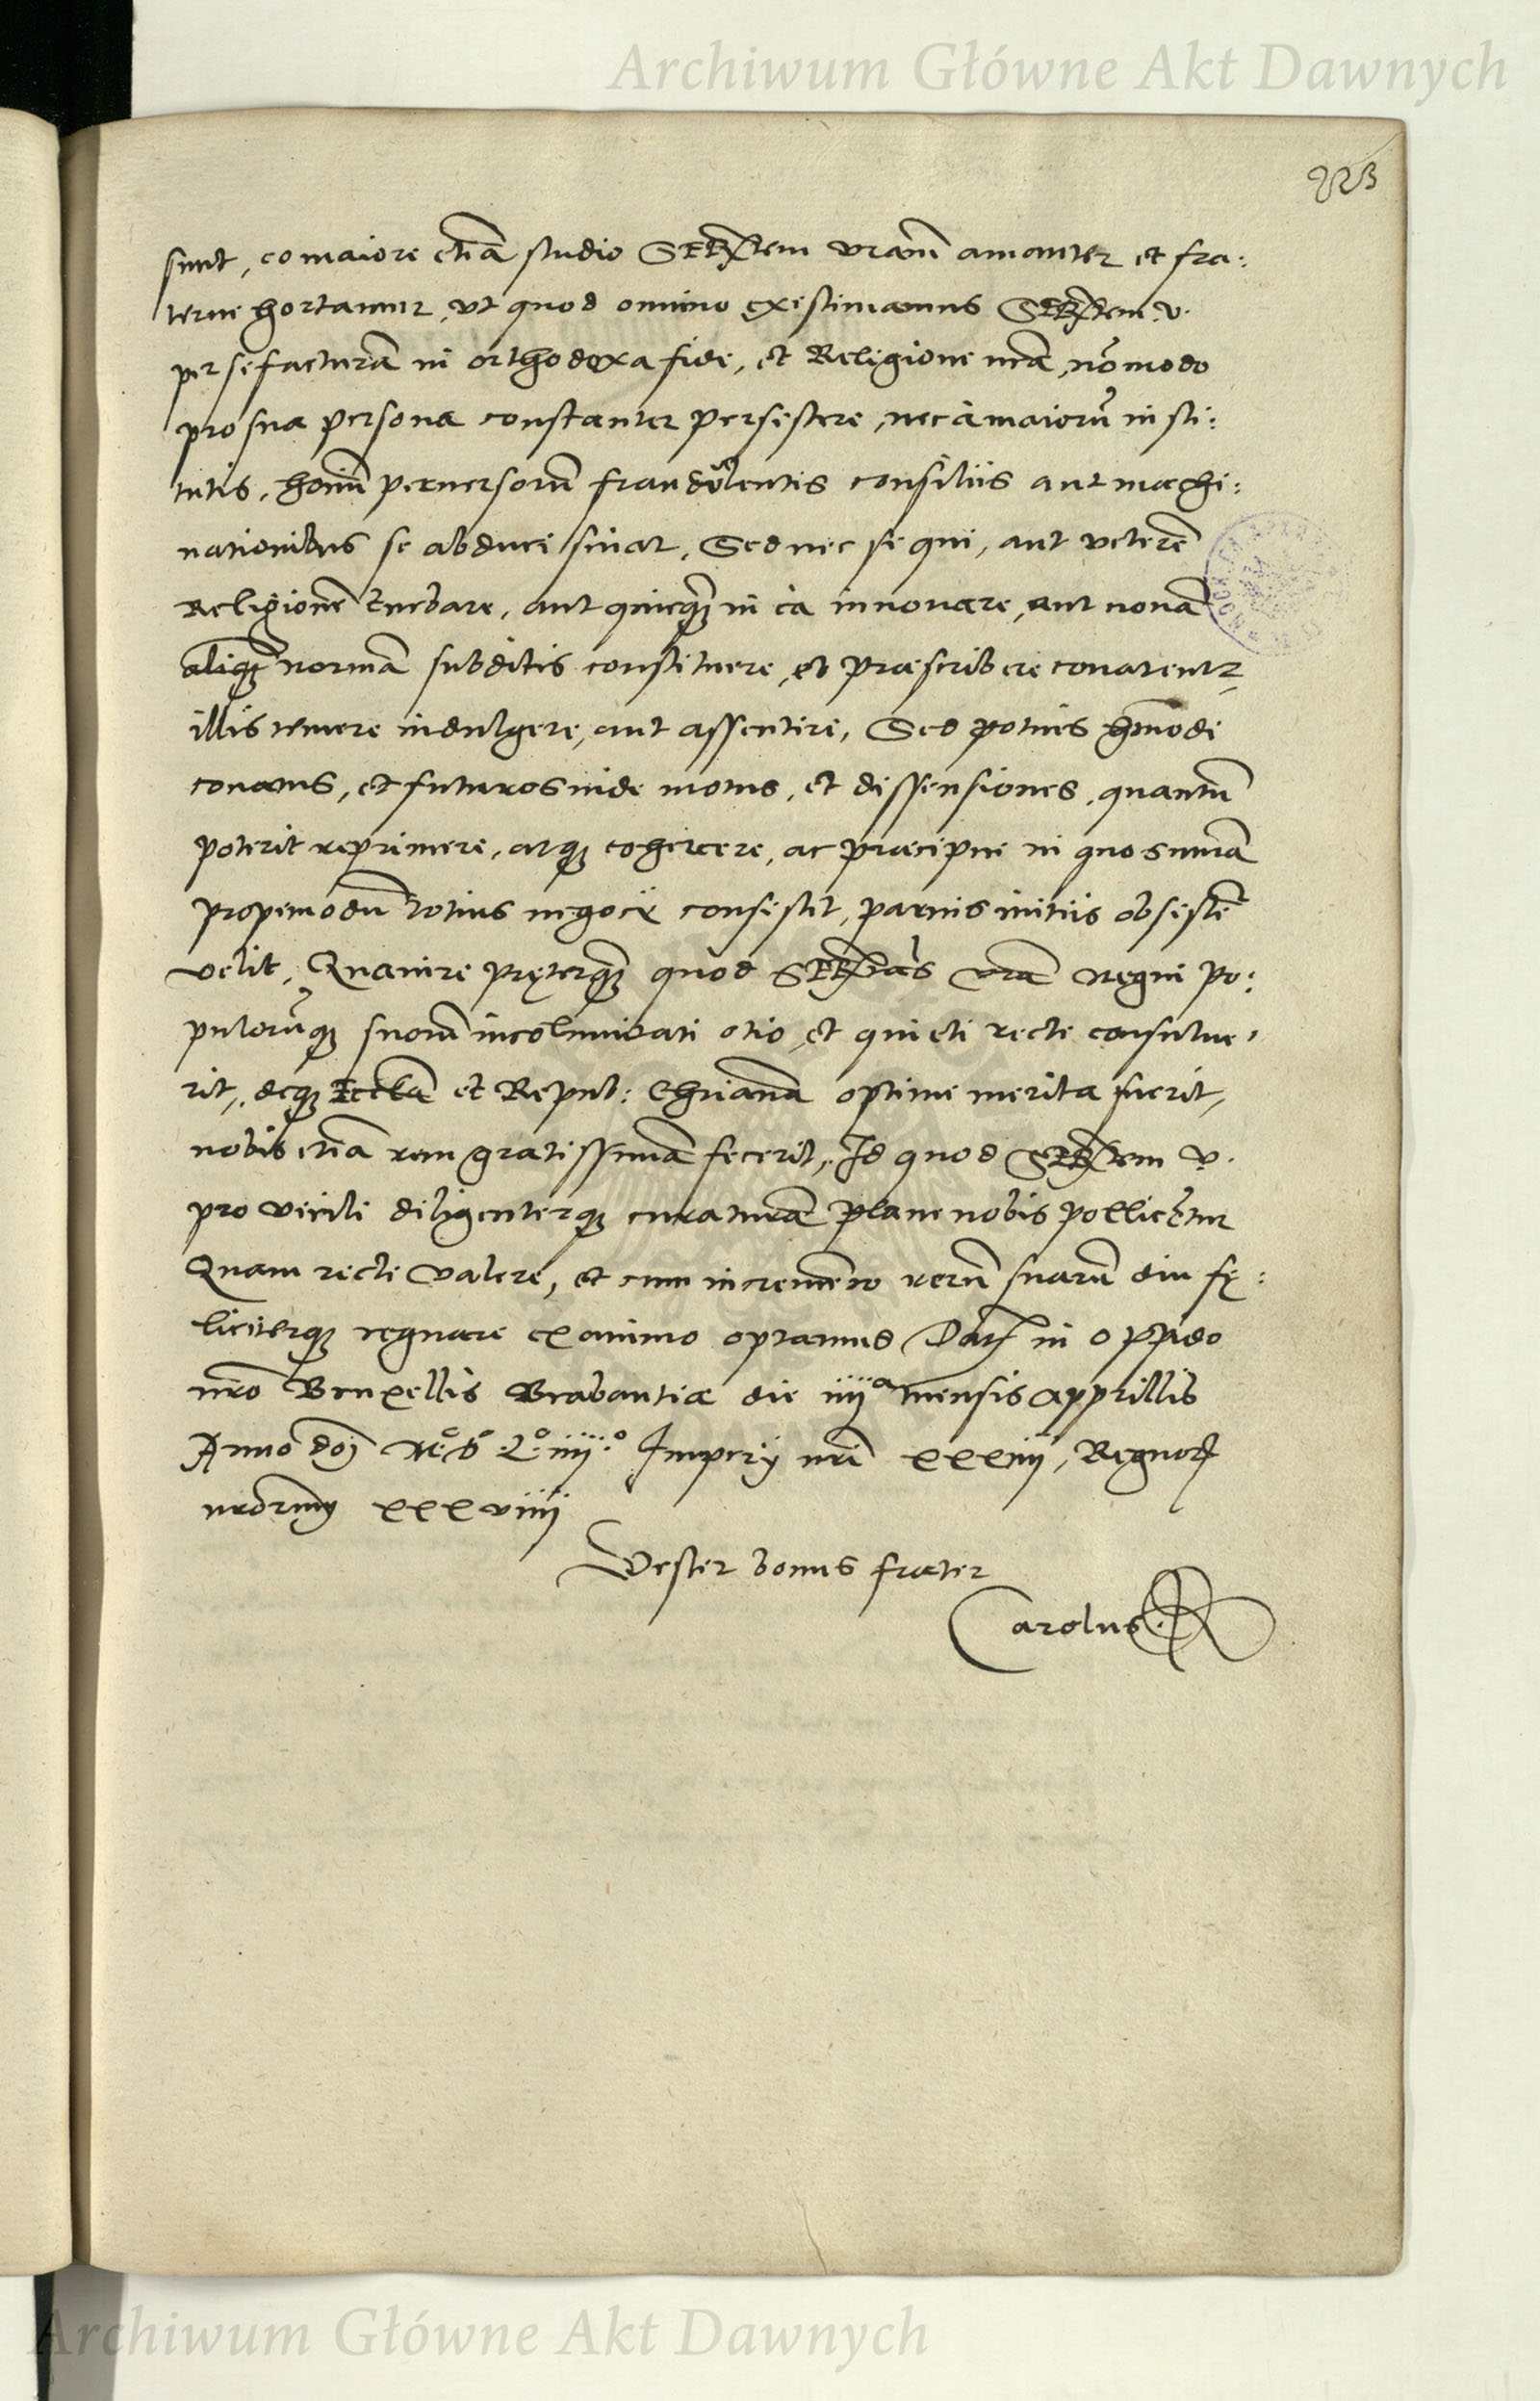 Archiwum Główne Akt Dawnych
223
sunt, eo maiore etiã studio SERtem vram amanter et fra:
terne hortamur, vt quod omnino existimamus SERtem v.
per se facturã in orthodoxa fide, et Religione nrã, nõ modo
pro sua persona constanter persistere, nec à maiorũ insti:
tutis, hoim̃ peruersorũ fraudulentis consiliis aut machi:
nationibus se abduci sinat, Sed nec si qui, aut veterẽ
Religionẽ turbare, aut quicq̃ in ea innouare, aut nouã
aliq̃ normã subditis constituere, et præscribere conarentur
illis temere indulgere, aut assentire, Sed potius hm̃odi
conatus, et futuros inde motus, et dissensiones, quantũ
poterit reprimere, atq; cohercere, ac præcipue in quo sum̃a
propemodũ totius negocÿ consistit, paruis initiis obsistẽ
velit, Quauire pręterq̃ quòd SERtas vrã regni po:
pulorũq; suorũ incolumitati otio, et quieti recte consulue,
rit, deq; Eccl̃ã et Repub: Chrianã optime merita fuerit,
nobis etiã rem gratissimã fecerit, Id quod SERtem v.
pro virili diligenterq; curaturã plane nobis pollicẽtur
Quam recte valere, et cum incremẽto rerũ suarũ diu fę:
liciterq; regnare ex animo optamus Dat̃ in oppido
nrõ Bruxellis Brabantiæ die iiijª mensis apprillis
Anno dñj Mº.dº.Lº.iiijº. Imperÿ nri xxxiiij, Regnor̃
nrõrum xxxviiij
Vester bonus frater
Carolus R
Archiwum Główne Akt Dawnych